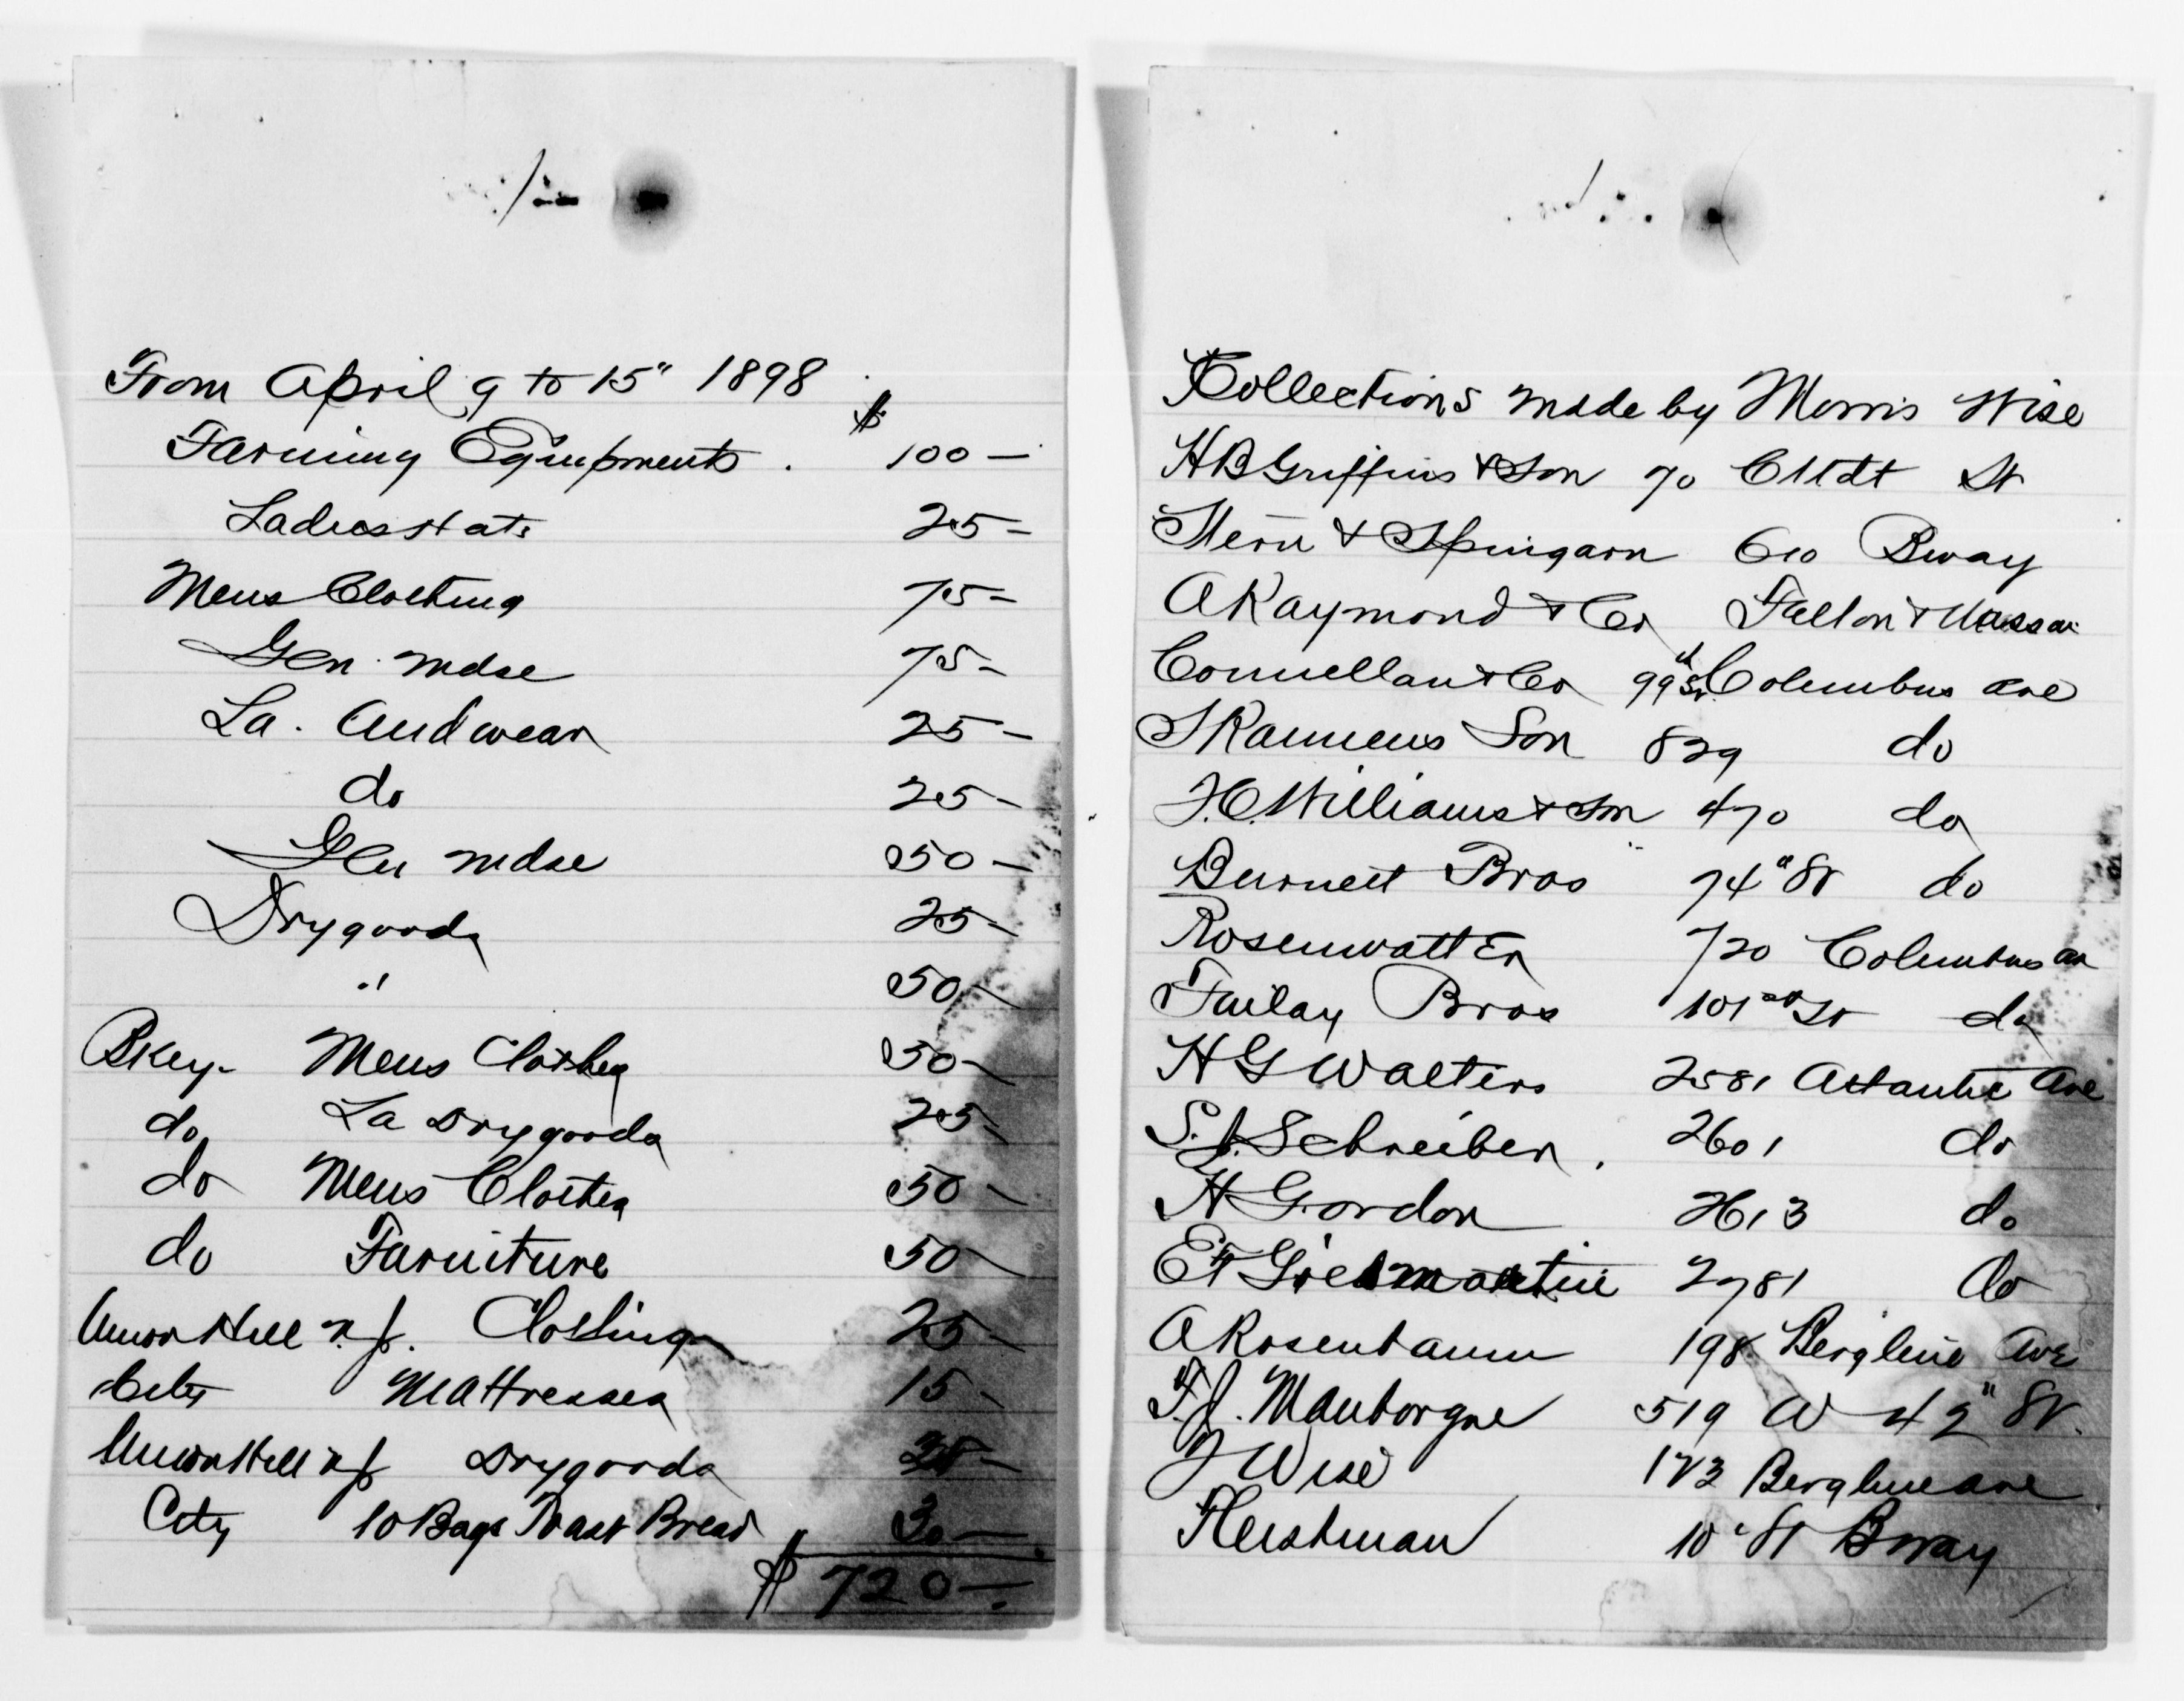 From April 9 to 15" 1898
Farming Equipments . $ 100 —
Ladies Hats 25 —
Mens Clothing 75 —
Gen. mdse 75 —
La. Undwear 25 —
do 25 —
Gen mdse 50 —
Drygoods 25 —
" 50 —
Bkly- Mens Clothing 50 —
do La Drygoods 25 —
do Mens Clothes 50 —
do Furniture 50 —
Union Hill N.J. Clothing 25 —
City Mattresses 15 —
Union Hill N J Drygoods 25 —
City 10 Bags Toast Bread 30 —
$ 720 —
Collections made by Morris Wise
H B Griffins & Son 70 Cltdt St
Stern & Spingarn 610 Bway
A Raymond & Co Fulton & Nassau
Connellan & Co 99th St. Columbus Ave
S Kannens Son 829 do
J. C. Williams & Son 470 do
Burnett Bros 74" St do
Rosenwatter 720 Columbus av
Bros 101st St do
H G Walters 2581 Atlantic Ave
S. J. Schreiber. 2601 do
H Gordon 2613 do
2781 do
A Rosenbaum 198 Bergline Ave
F. J. Mauborgne 519 W 42" St.
J Wise 173 Bergline ave
Hershman 10" St Bway